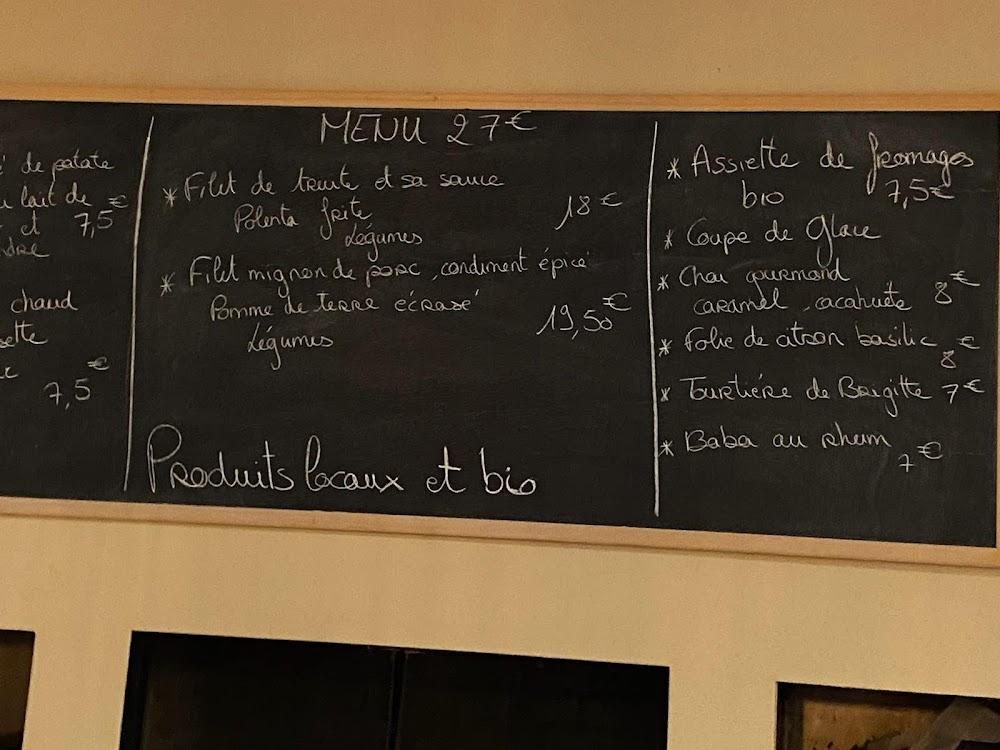 de patate
lait de €
et 7,5
chaud
€
7,5
MENU 27€
* Filet de truite et sa sauce
Polenta frite 18€
Légumes
* Filet mignon de porc, condiment épicé
Pomme de terre écrasé 19,50€
Légumes
Produits locaux et bio
* Assiette de fromages
bio 7,5€
* Coupe de Glace
* Chou gourmand
caramel, cacahuète 8€
* Folie de citron basilic €
8
* Tourtière de Brigitte 7€
* Baba au rhum
7€